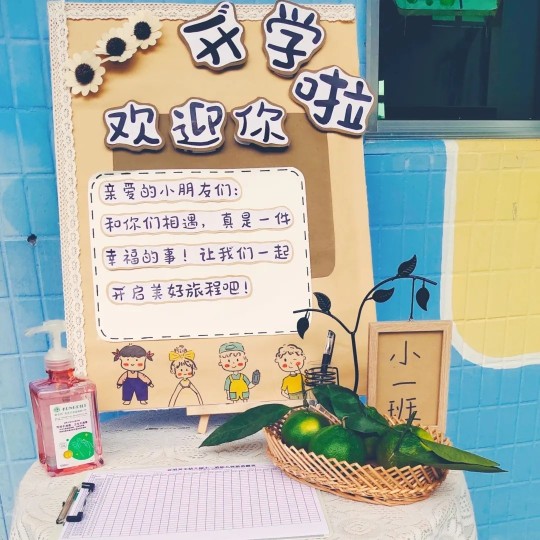 开学啦
欢迎你
亲爱的小朋友们:
和你们相遇，真是一件
幸福的事！让我们一起
开启美好旅程吧！
小一班